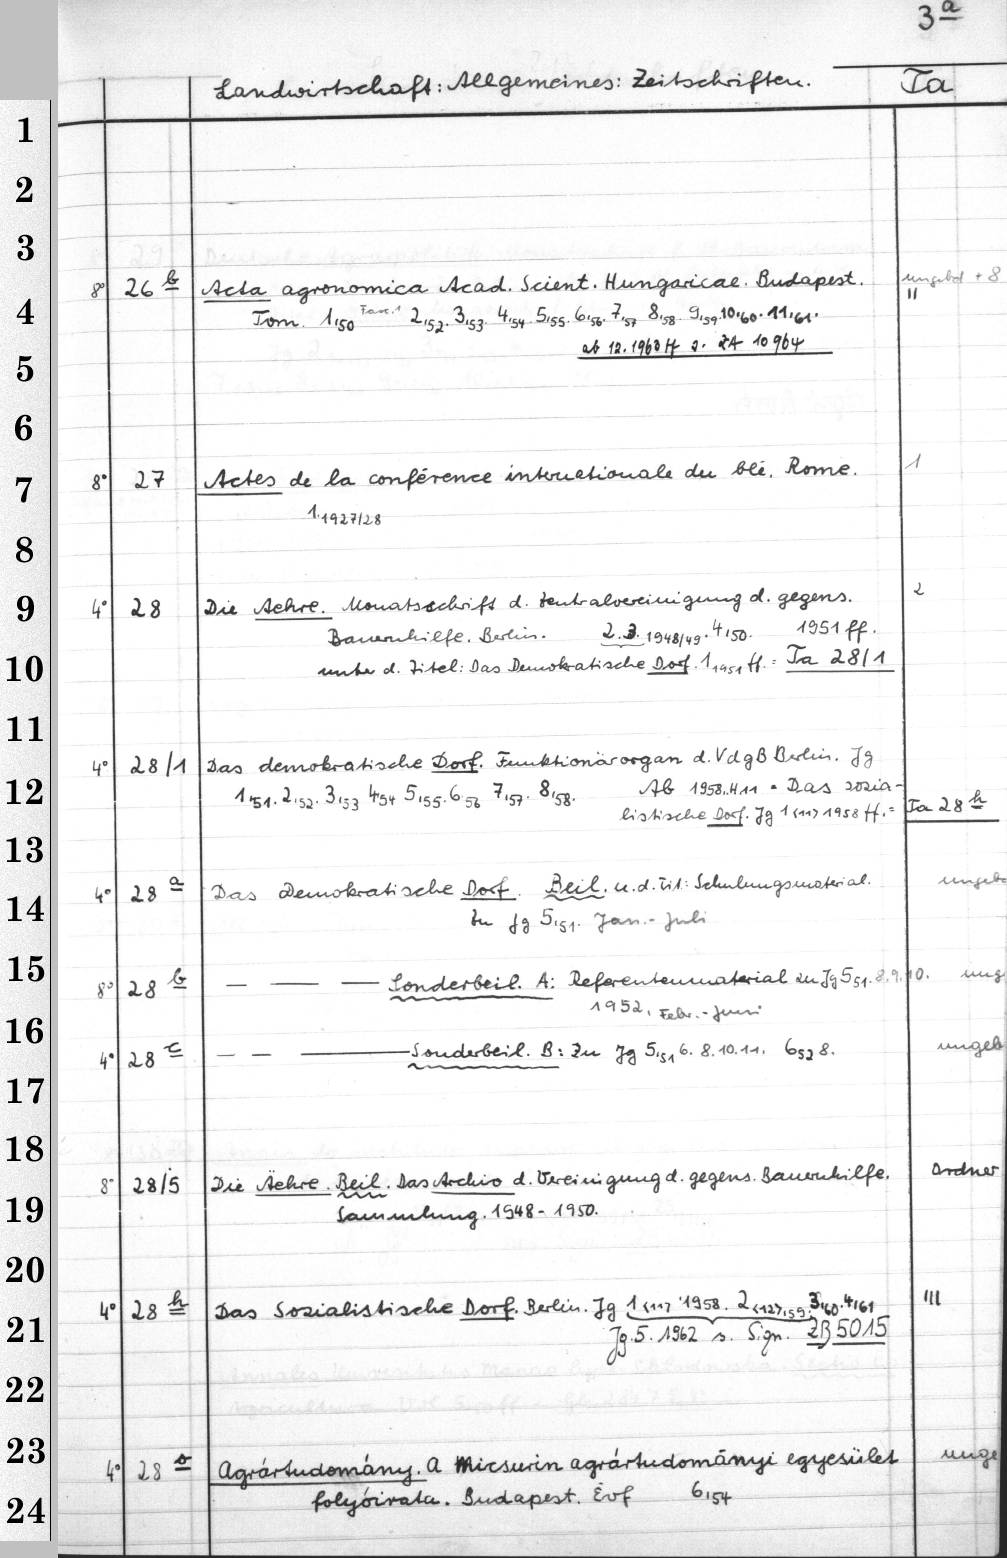 3a
Landwirtschaft: Allgemeines: Zeitschriften. Ta
1
2
3
8° 26 b Acta agronomica Acad. Scient. Hungaricae. Budapest. ungebd + 8
4 Tom. 1,50 Fasc.1 2,52. 3,53. 4,54 5,55. 6,56. 7,57 8,58. 9,59. 10,60. 11,61. II
ab 12.1963 ff s. ZA 10964
5
6
7 8° 27 Actes de la conférence internationale du blé. Rome. 1
1.1927/28
8
9 4° 28 Die Aehre. Monatsschrift d. Zentralvereinigung d. gegens. 2
Bauernhilfe. Berlin. 2.3. 1948/49. 4,50. 1951 ff.
10 unter d. Titel: Das Demokratische Dorf. 1 1951 ff. = Ta 28/1
11
4° 28/1 Das demokratische Dorf. Funktionärorgan d. VdgB Berlin. Jg
12 1,51. 2,52. 3,53 4,54 5,55. 6,56 7,57. 8,58. Ab 1958,H11 = Das sozia-
listische Dorf. Jg 1<11> 1958 ff. = Ta 28 h
13
14 4° 28 a Das Demokratische Dorf. Beil. u. d. Tit: Schulungsmaterial.
Zu Jg 5,51. Jan. - Juli
15 8° 28 b — — — Sonderbeil. A: Referentenmaterial zu Jg 5 51. 8.9.10. ung
1952, Febr. - Juni
16 4° 28 c — — — Sonderbeil. B: Zu Jg 5,51 6. 8. 10. 11. 6 52 8. ungeb
17
18
8° 28/5 Die Aehre. Beil. Das Archiv d. Vereinigung d. gegens. Bauernhilfe. Ordner
19 Sammlung. 1948 - 1950.
20
4° 28 h Das Sozialistische Dorf. Berlin. Jg 1<11> 1958. 2<12>,59. 3,60. 4,61 III
21 Jg. 5. 1962 s. Sign. ZB 5015
22
23 4° 28 o Agrártudomány. A Micsurin agrártudományi egyesület unge
24 folyóirata. Budapest. Évf 6,54